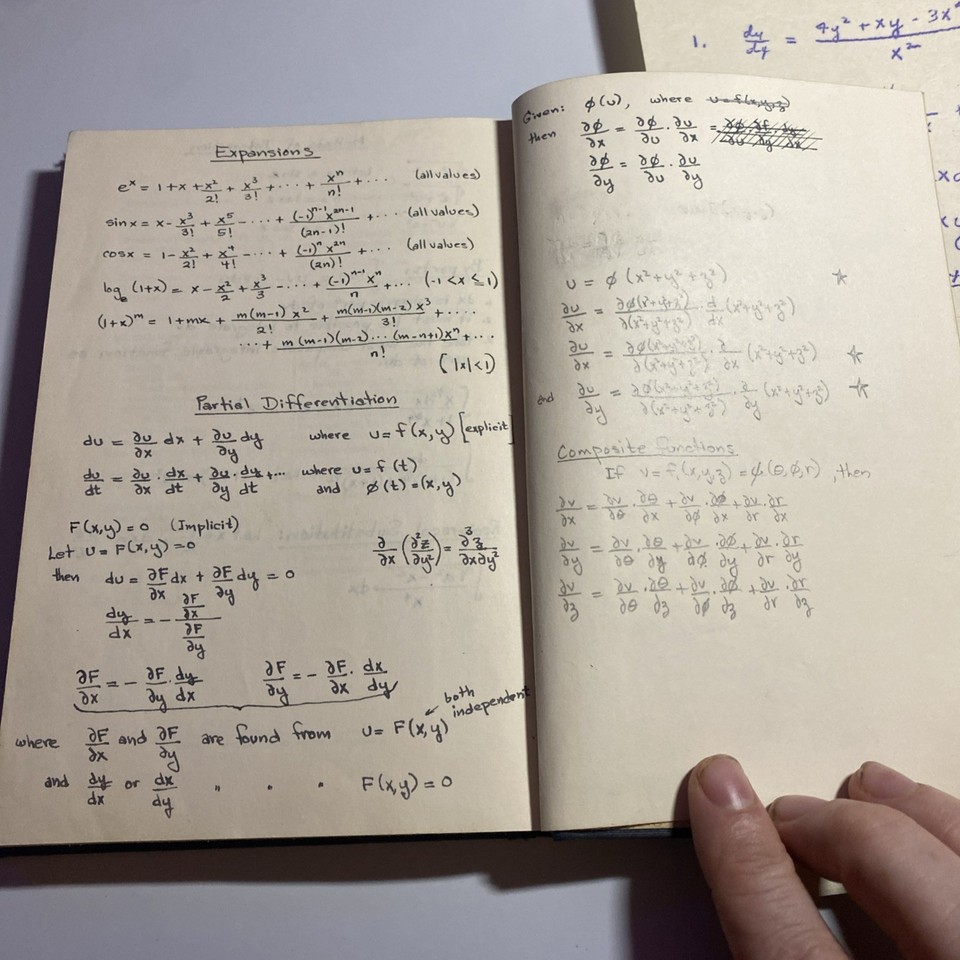 Expansions
e^x = 1 + x + x²/2! + x³/3! + ··· + x^n/n! + ··· (all values)
sin x = x - x³/3! + x⁵/5! - ··· + (-1)^(n-1) x^(2n-1)/(2n-1)! + ··· (all values)
cos x = 1 - x²/2! + x⁴/4! - ··· + (-1)^n x^(2n)/(2n)! + ··· (all values)
log_e (1+x) = x - x²/2 + x³/3 - ··· + (-1)^(n-1) x^n/n + ··· (-1 < x ≤ 1)
(1+x)^m = 1 + mx + m(m-1) x²/2! + m(m-1)(m-2) x³/3! + ····
··· + m(m-1)(m-2)···(m-n+1)x^n/n! + ···
(|x|<1)
Partial Differentiation
du = ∂u/∂x dx + ∂u/∂y dy where u = f(x,y) [explicit]
du/dt = ∂u/∂x · dx/dt + ∂u/∂y · dy/dt + ··· where u = f(t)
and φ(t) = (x,y)
F(x,y) = 0 (Implicit)
Let u = F(x,y) = 0
∂/∂x (∂²z/∂y²) = ∂³z/∂x∂y²
then du = ∂F/∂x dx + ∂F/∂y dy = 0
dy/dx = - ∂F/∂x / ∂F/∂y
∂F/∂x = - ∂F/∂y · dy/dx ∂F/∂y = - ∂F/∂x · dx/dy
both independent
where ∂F/∂x and ∂F/∂y are found from u = F(x,y)
and dy/dx or dx/dy " " " F(x,y) = 0
Given: φ(u), where u = f(x,y,z)
then ∂φ/∂x = ∂φ/∂u · ∂u/∂x =
∂φ/∂y = ∂φ/∂u · ∂u/∂y
u = φ (x²+y²+z²) ☆
∂u/∂x = ∂φ(x²+y²+z²)/∂(x²+y²+z²) · d/dx (x²+y²+z²)
∂u/∂x = ∂φ(x²+y²+z²)/∂(x²+y²+z²) · ∂/∂x (x²+y²+z²) ☆
and ∂u/∂y = ∂φ(x²+y²+z²)/∂(x²+y²+z²) · ∂/∂y (x²+y²+z²) ☆
Composite functions
If v = f(x,y,z) = φ(θ,φ,r), then
∂v/∂x = ∂v/∂θ · ∂θ/∂x + ∂v/∂φ · ∂φ/∂x + ∂v/∂r · ∂r/∂x
∂v/∂y = ∂v/∂θ · ∂θ/∂y + ∂v/∂φ · ∂φ/∂y + ∂v/∂r · ∂r/∂y
∂v/∂z = ∂v/∂θ · ∂θ/∂z + ∂v/∂φ · ∂φ/∂z + ∂v/∂r · ∂r/∂z
1. dy/dx = 4y² + xy - 3x / x²